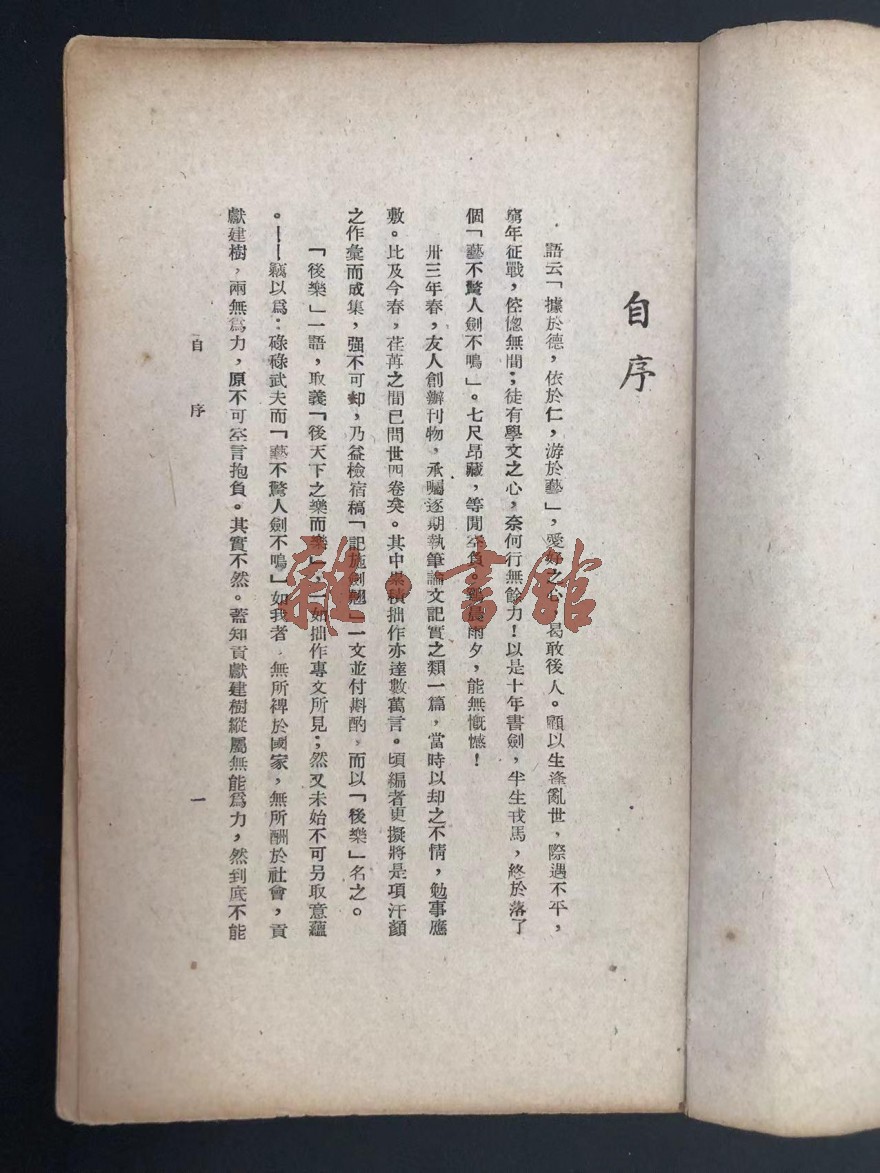 自序
語云「據於德，依於仁，游於藝」，愛好之心，曷敢後人。顧以生逢亂世，際遇不平，
窮年征戰，倥傯無間；徒有學文之心，奈何行無餘力！以是十年書劍，半生戎馬，終於落了
個「藝不驚人劍不鳴」。七尺昂藏，等閒空負。雞晨雨夕，能無慨憾！
卅三年春，友人創辦刊物，承囑逐期執筆論文記實之類一篇，當時以却之不情，勉事應
敷。比及今春，荏苒之間已問世四卷矣。其中纍積拙作亦達數萬言。頃編者更擬將是項汗顏
之作彙而成集，强不可却，乃益檢宿稿「記施劍翹」一文並付斟酌，而以「後樂」名之。
「後樂」一語，取義「後天下之樂而樂」，一如拙作專文所見；然又未始不可另取意蘊
。——竊以爲：碌碌武夫而「藝不驚人劍不鳴」如我者，無所裨於國家，無所酬於社會，貢
獻建樹，兩無爲力，原不可空言抱負。其實不然。蓋知貢獻建樹縱屬無能爲力，然到底不能
自序
一
雜·書館